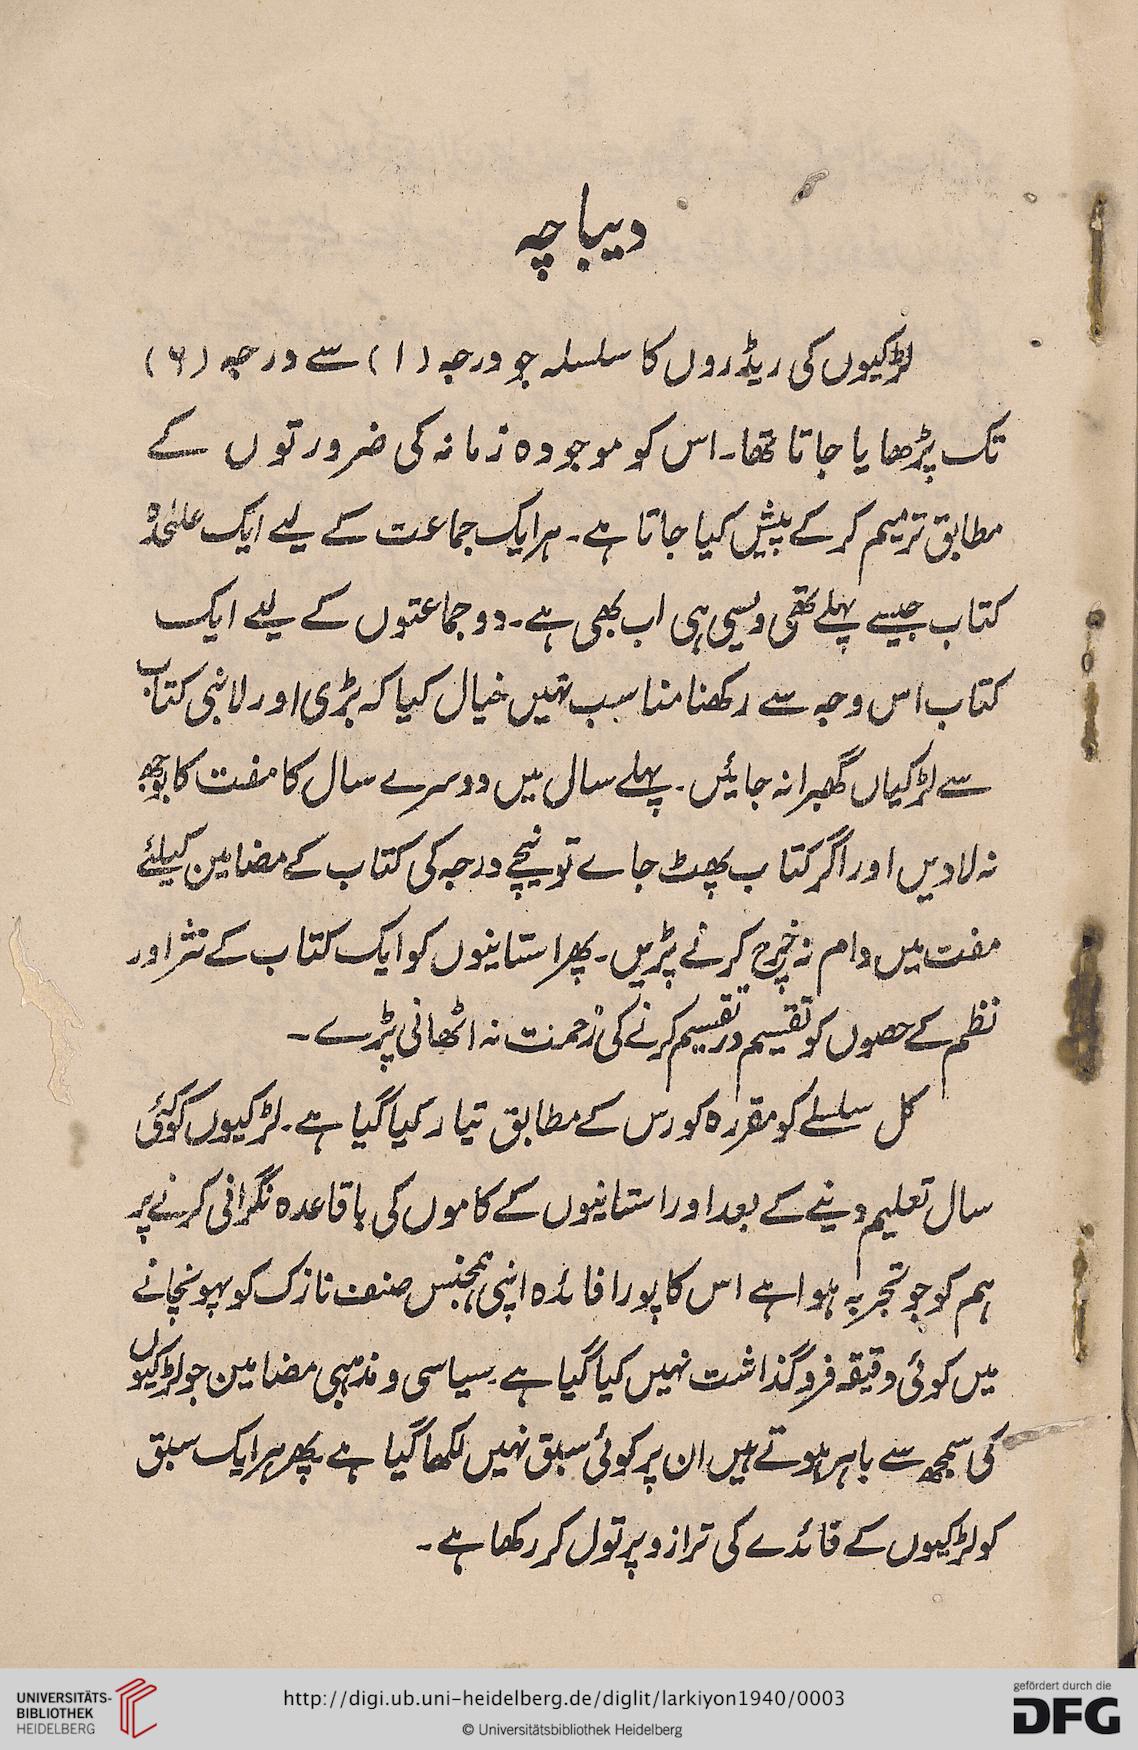 دیباچہ
لڑکیوں کی ریڈروں کا سلسلہ جو درجہ (۱) سے درجہ (۶)
تک پڑھایا جاتا تھا۔ اس کو موجودہ زمانہ کی ضرورتوں کے
مطابق ترمیم کر کے پیش کیا جاتا ہے۔ ہر ایک جماعت کے لیے ایک علیٰحدہ
کتاب جیسے پہلے تھی ویسی ہی اب بھی ہے۔ دو جماعتوں کے لیے ایک
کتاب اس وجہ سے رکھنا مناسب نہیں خیال کیا کہ بڑی اور لانبی کتاب
سے لڑکیاں گھبرا نہ جائیں۔ پہلے سال میں دوسرے سال کا مفت کا بوجھ
نہ لادیں اور اگر کتاب پھٹ جاے تو نیچے درجہ کی کتاب کے مضامین کیلئے
مفت میں دام نہ خرچ کرنے پڑیں۔ پھر استانیوں کو ایک کتاب کے نثر اور
نظم کے حصوں کو تقسیم در تقسیم کرنے کی زحمت نہ اٹھانی پڑے۔
کل سلسلے کو مقررہ کورس کے مطابق تیار کیا گیا ہے۔ لڑکیوں کو کئی
سال تعلیم دینے کے بعد اور استانیوں کے کاموں کی باقاعدہ نگرانی کرنے پر
ہم کو جو تجربہ ہوا ہے اس کا پورا فائدہ اپنی ہمجنس صنف نازک کو پہونچانے
میں کوئی دقیقہ فروگذاشت نہیں کیا گیا ہے۔ سیاسی و مذہبی مضامین جو لڑکیوں
کی سمجھ سے باہر ہوتے ہیں ان پر کوئی سبق نہیں لکھا گیا ہے۔ پھر ہر ایک سبق
کو لڑکیوں کے فائدے کی ترازو پر تول کر رکھا ہے۔
UNIVERSITÄTS-
BIBLIOTHEK
HEIDELBERG
http://digi.ub.uni-heidelberg.de/diglit/larkiyon1940/0003
© Universitätsbibliothek Heidelberg
gefördert durch die
DFG